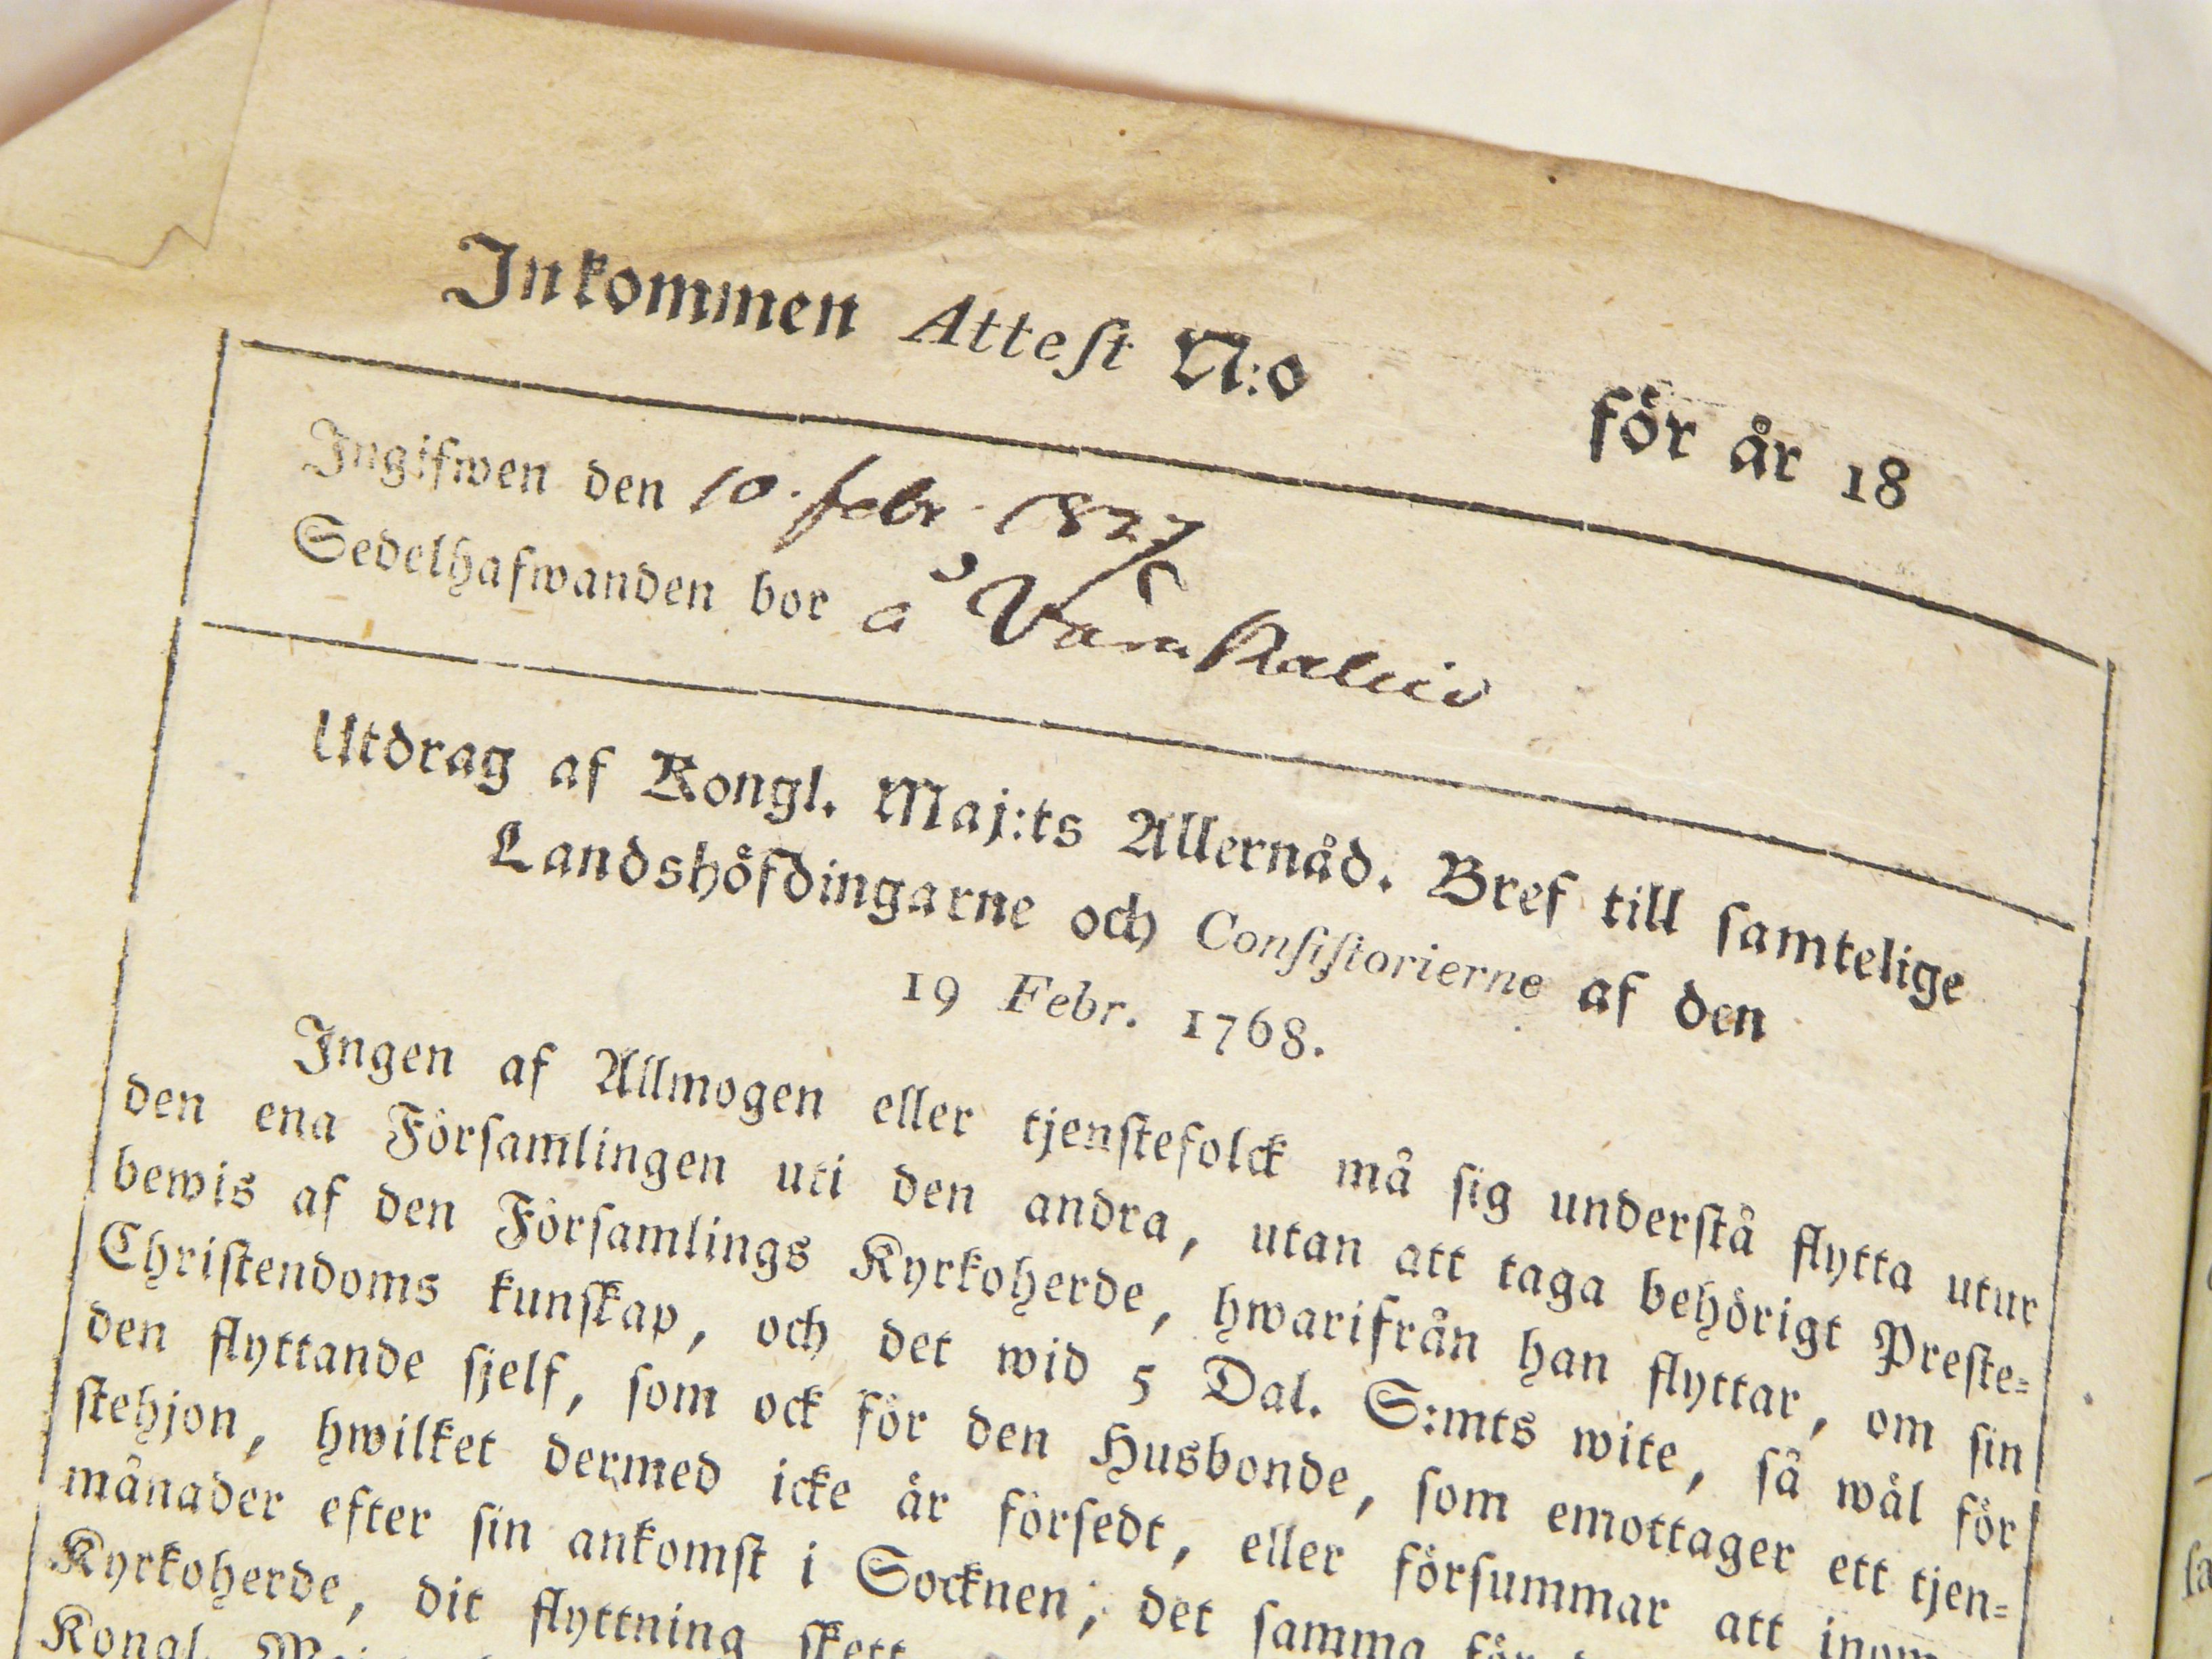 Inkommen Attest N:o för år 18
Ingifwen den 10. febr. 1827
Sedelhafwanden bor å
Utdrag af Kongl. Maj:ts Allernåd. Bref till samtelige
Landshöfdingarne och Consistorierne af den
19 Febr. 1768.
Ingen af Allmogen eller tjenstefolck må sig understå flytta utur
den ena Församlingen uti den andra, utan att taga behörigt Preste-
bewis af den Församlings Kyrkoherde, hwarifrån han flyttar, om sin
Christendoms kunskap, och det wid 5 Dal. S:mts wite, så wäl för
den flyttande sjelf, som ock för den Husbonde, som emottager ett tjen-
stehjon, hwilket dermed icke är försedt, eller försummar att inom
månader efter sin ankomst i Socknen; det samma för
Kyrkoherde, dit flyttning skett
Kongl.